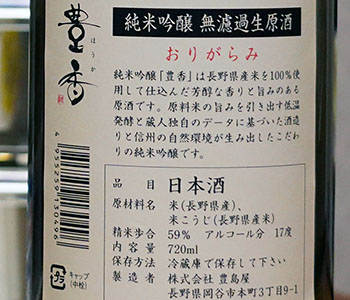 豊香
ほうか
純米吟醸 無濾過生原酒
おりがらみ
純米吟醸「豊香」は長野県産米を100%使
用して仕込んだ芳醇な香りと旨みのあ
る原酒です。原料米の旨みを引き出す低温
発酵と蔵人独自のデータに基づいた酒造
りと信州の自然環境が生み出したこだわ
りの純米吟醸です。
品目 日本酒
原材料名 米(長野県産)、
米こうじ(長野県産米)
精米歩合 59% アルコール分 17度
内容量 720ml
保存方法 冷蔵庫で保存して下さい
製造者 株式会社 豊島屋
長野県岡谷市本町3丁目9-1
キャップ
(中栓)